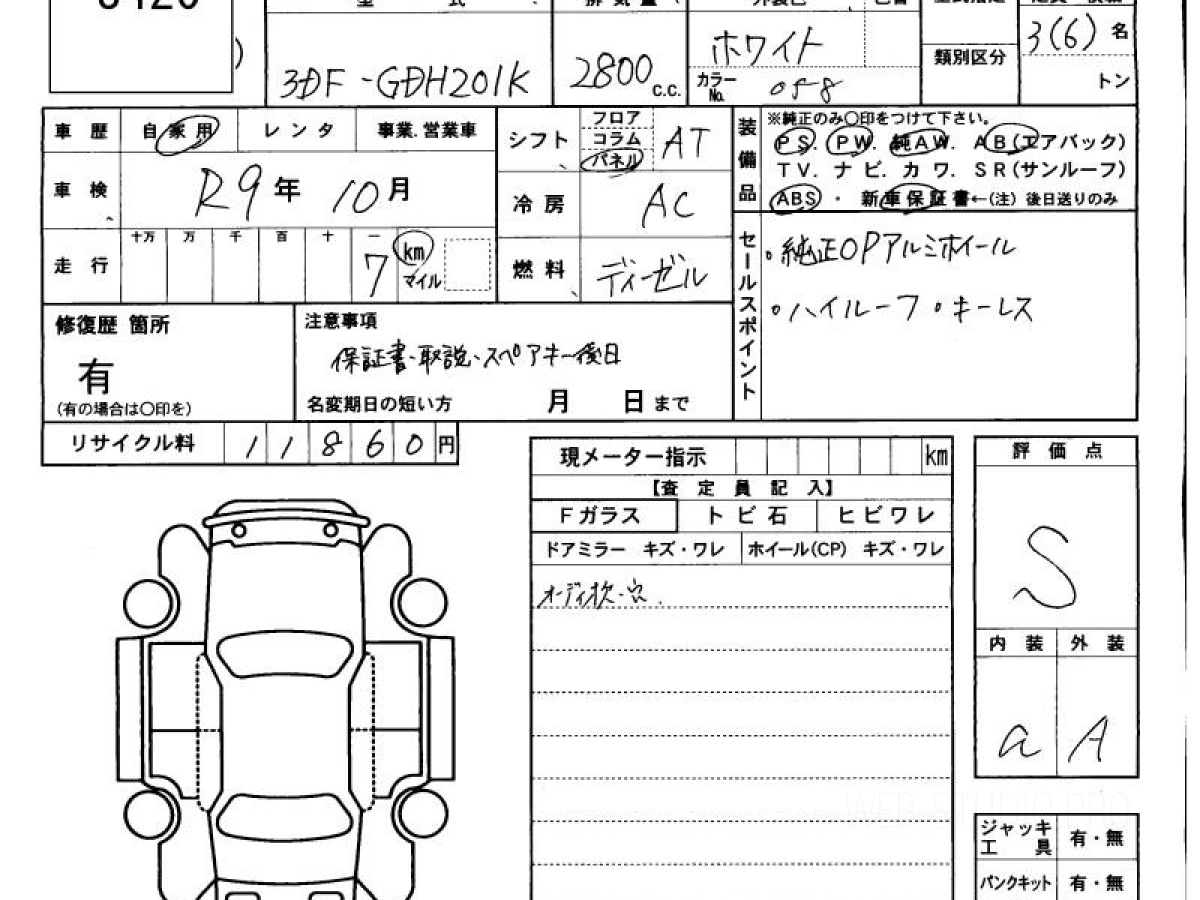 3DF-GDH201K
2800 c.c.
ホワイト
カラーNo. 058
類別区分
3(6) 名
トン
車歴 自家用 レンタ 事業.営業車
車検 R9年 10月
走行 十万 万 千 百 十 一 7 km マイル
シフト フロア コラム パネル AT
冷房 AC
燃料 ディーゼル
装備品
※純正のみ〇印をつけて下さい。
PS. PW. 純AW. AB(エアバック)
TV. ナビ. カワ. SR(サンルーフ)
ABS ・ 新車保証書←(注) 後日送りのみ
セールスポイント
・純正OPアルミホイール
・ハイルーフ ・キーレス
修復歴 箇所
有
(有の場合は〇印を)
注意事項
保証書・取説・スペアキー後日
名変期日の短い方 月 日まで
リサイクル料 11860円
現メーター指示 km
【査定員記入】
Fガラス トビ石 ヒビワレ
ドアミラー キズ・ワレ ホイール(CP) キズ・ワレ
オーディオ欠・穴.
評価点
S
内装 外装
a A
ジャッキ工具 有・無
パンクキット 有・無
WEB-STUDIO.PRO